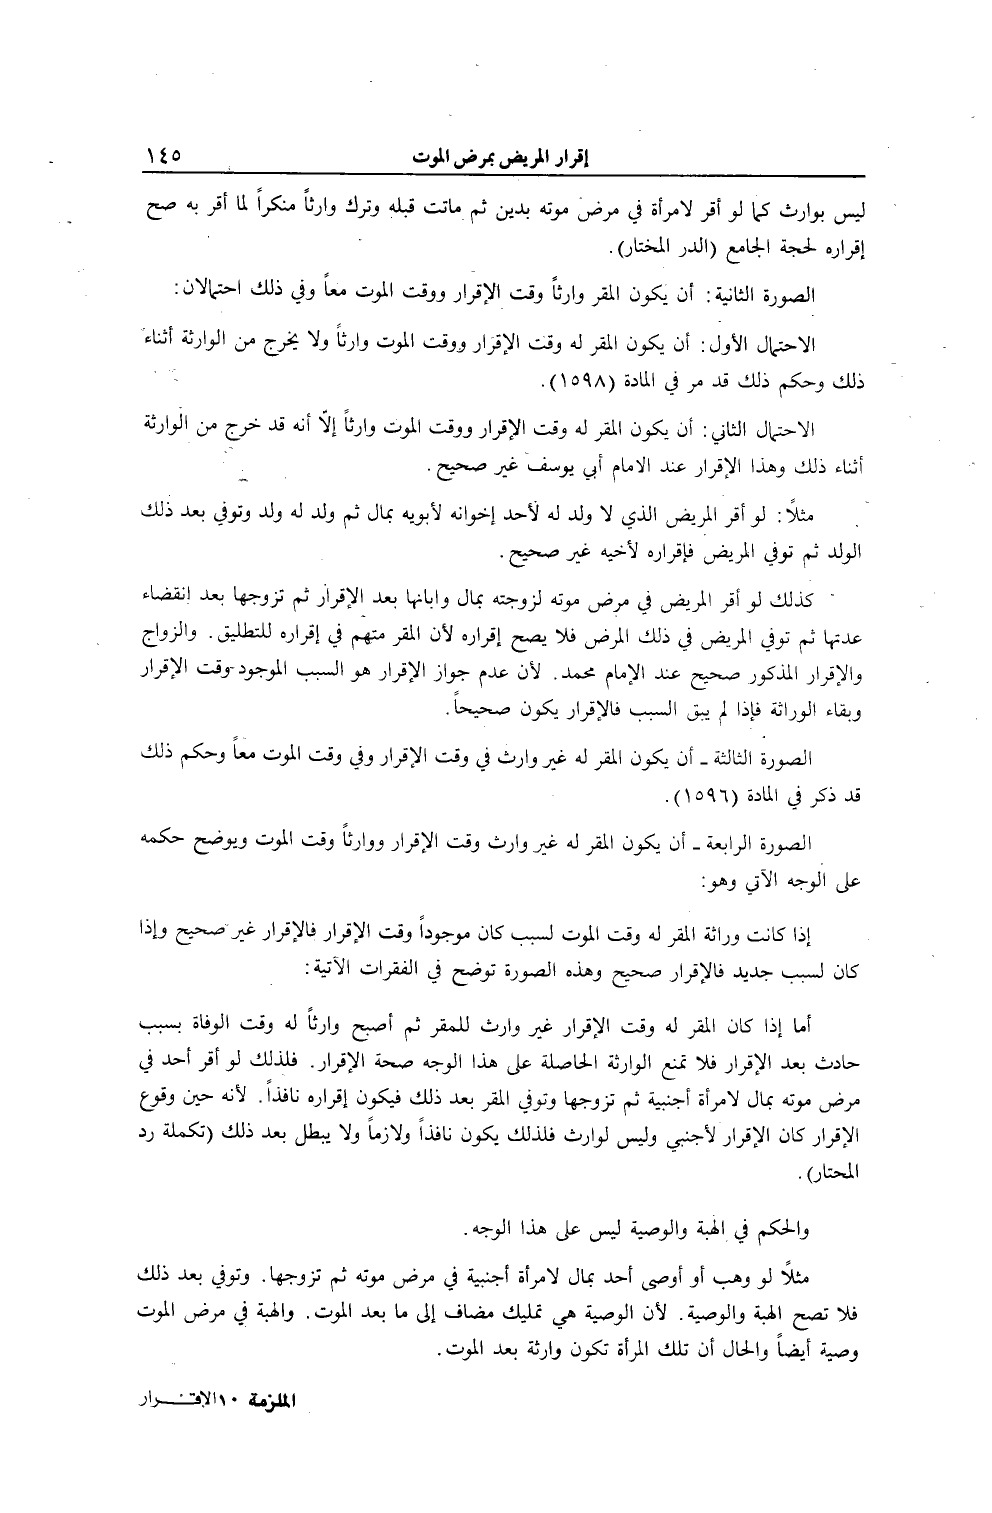 إقرار المريض بمرض الموت ١٤٥
ليس بوارث كما لو أقر لامرأة في مرض موته بدين ثم ماتت قبله وترك وارثاً منكراً لما أقر به صح
إقراره لحجة الجامع (الدر المختار).
الصورة الثانية: أن يكون المقر وارثاً وقت الإقرار ووقت الموت معاً وفي ذلك احتمالان:
الاحتمال الأول: أن يكون المقر له وقت الإقرار ووقت الموت وارثاً ولا يخرج من الوارثة أثناء
ذلك وحكم ذلك قد مر في المادة (١٥٩٨).
الاحتمال الثاني: أن يكون المقر له وقت الإقرار ووقت الموت وارثاً إلّا أنه قد خرج من الوارثة
أثناء ذلك وهذا الإقرار عند الامام أبي يوسف غير صحيح.
مثلًا: لو أقر المريض الذي لا ولد له لأحد إخوانه لأبويه بمال ثم ولد له ولد وتوفي بعد ذلك
الولد ثم توفي المريض فإقراره لأخيه غير صحيح.
كذلك لو أقر المريض في مرض موته لزوجته بمال وابانها بعد الإقرار ثم تزوجها بعد انقضاء
عدتها ثم توفي المريض في ذلك المرض فلا يصح إقراره لأن المقر متهم في إقراره للتطليق. والزواج
والإقرار المذكور صحيح عند الإمام محمد. لأن عدم جواز الإقرار هو السبب الموجود وقت الإقرار
وبقاء الوراثة فإذا لم يبق السبب فالإقرار يكون صحيحاً.
الصورة الثالثة ـ أن يكون المقر له غير وارث في وقت الإقرار وفي وقت الموت معاً وحكم ذلك
قد ذكر في المادة (١٥٩٦).
الصورة الرابعة ـ أن يكون المقر له غير وارث وقت الإقرار ووارثاً وقت الموت ويوضح حكمه
على الوجه الآتي وهو:
إذا كانت وراثة المقر له وقت الموت لسبب كان موجوداً وقت الإقرار فالإقرار غير صحيح وإذا
كان لسبب جديد فالإقرار صحيح وهذه الصورة توضح في الفقرات الآتية:
أما إذا كان المقر له وقت الإقرار غير وارث للمقر ثم أصبح وارثاً له وقت الوفاة بسبب
حادث بعد الإقرار فلا تمنع الوارثة الحاصلة على هذا الوجه صحة الإقرار. فلذلك لو أقر أحد في
مرض موته بمال لامرأة أجنبية ثم تزوجها وتوفي المقر بعد ذلك فيكون إقراره نافذاً. لأنه حين وقوع
الإقرار كان الإقرار لأجنبي وليس لوارث فلذلك يكون نافذاً ولازماً ولا يبطل بعد ذلك (تكملة رد
المحتار).
والحكم في الهبة والوصية ليس على هذا الوجه.
مثلًا لو وهب أو أوصى أحد بمال لامرأة أجنبية في مرض موته ثم تزوجها. وتوفي بعد ذلك
فلا تصح الهبة والوصية. لأن الوصية هي تمليك مضاف إلى ما بعد الموت. والهبة في مرض الموت
وصية أيضاً والحال أن تلك المرأة تكون وارثة بعد الموت.
الملزمة ١٠ الإقـــرار